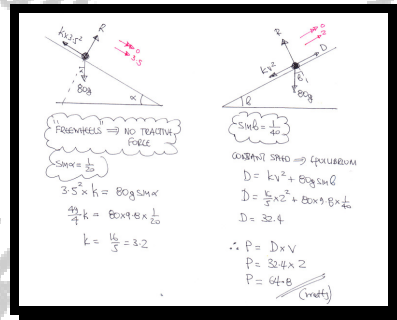 R
k×3.5²
0
3.5
80g
α
"FREEWHEELS" ⇒ NO TRACTIVE
FORCE
sinα = 1/20
3.5² × k = 80g sinα
49/4 k = 80×9.8× 1/20
k = 16/5 = 3.2
R
0
2
D
kv²
80g
β
sinβ = 1/40
CONSTANT SPEED ⇒ EQUILIBRIUM
D = kv² + 80g sinβ
D = 16/5 ×2² + 80×9.8× 1/40
D = 32.4
∴ P = D×V
P = 32.4 × 2
P = 64.8
(watts)